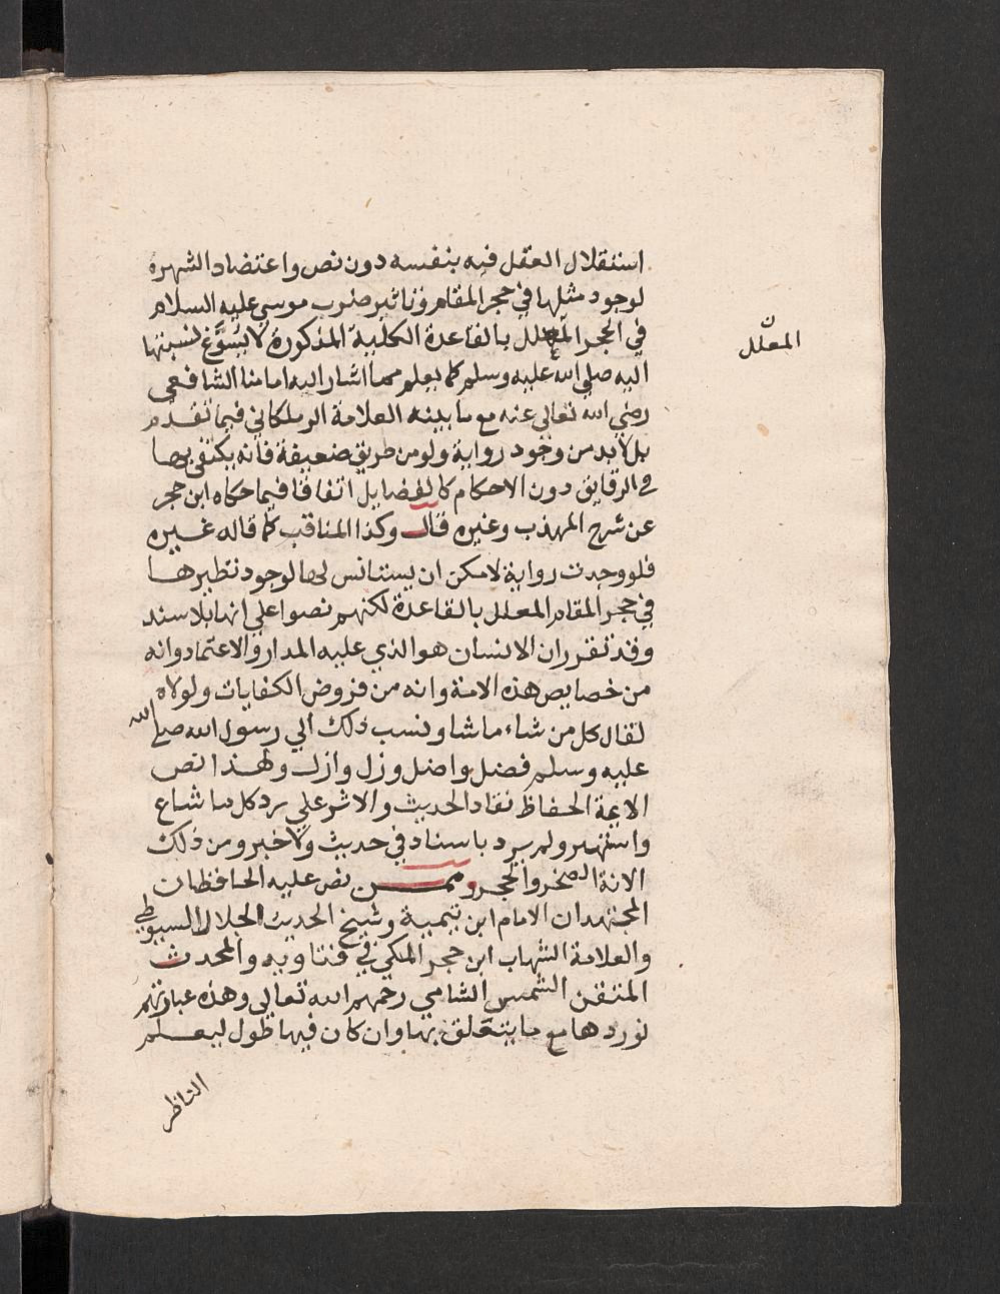 استقلال العقل فيه بنفسه دون نص واعتضاد الشهرة
لوجود مثلها في حجر المقام وتاثير ضرب موسي عليه السلام
في الحجر المعلل بالقاعدة الكلية المذكورة لا يسوغ نسبتها
المعلل
ن
اليه صلي الله عليه وسلم كما يعلم مما اشار اليه امامنا الشافعي
رضي الله تعالي عنه مع ما بينه العلامة الزملكاني فيما تقدم
بل لابد من وجود رواية ولو من طريق ضعيفة فانه يكتفي بها
في الرقايق دون الاحكام كالفضايل اتفاقا فيما حكاه ابن حجر
عن شرح المهذب وغيره قال وكذا المناقب كما قاله غيره
فلو وجدت رواية لامكن ان يستانس لها لوجود نظيرها
في حجر المقام المعلل بالقاعدة لكنهم نصوا علي انها بلا سند
وقد تقرر ان الانسان هو الذي عليه المدار والاعتماد وانه
من خصايص هذه الامة وانه من فروض الكفايات ولولاه
لقال كل من شاء ما شا ونسب ذلك الي رسول الله صلي الله
عليه وسلم فضل واضل وزل وازل ولهذا نص
الايمة الحفاظ نقاد الحديث والاثر علي رد كل ما شاع
واشتهر ولم يرد باسناد في حديث ولا خبر ومن ذلك
الانة الصخر والحجر وممن نص عليه الحافظان
المجتهدان الامام ابن تيمية وشيخ الحديث الجلال السيوطي
والعلامة الشهاب ابن حجر المكي في فتاويه والمحدث
المتقن الشمس الشامي رحمهم الله تعالي وهذه عبارتهم
نوردها مع ما يتعلق بها وان كان فيها طول ليعلم
الناظر